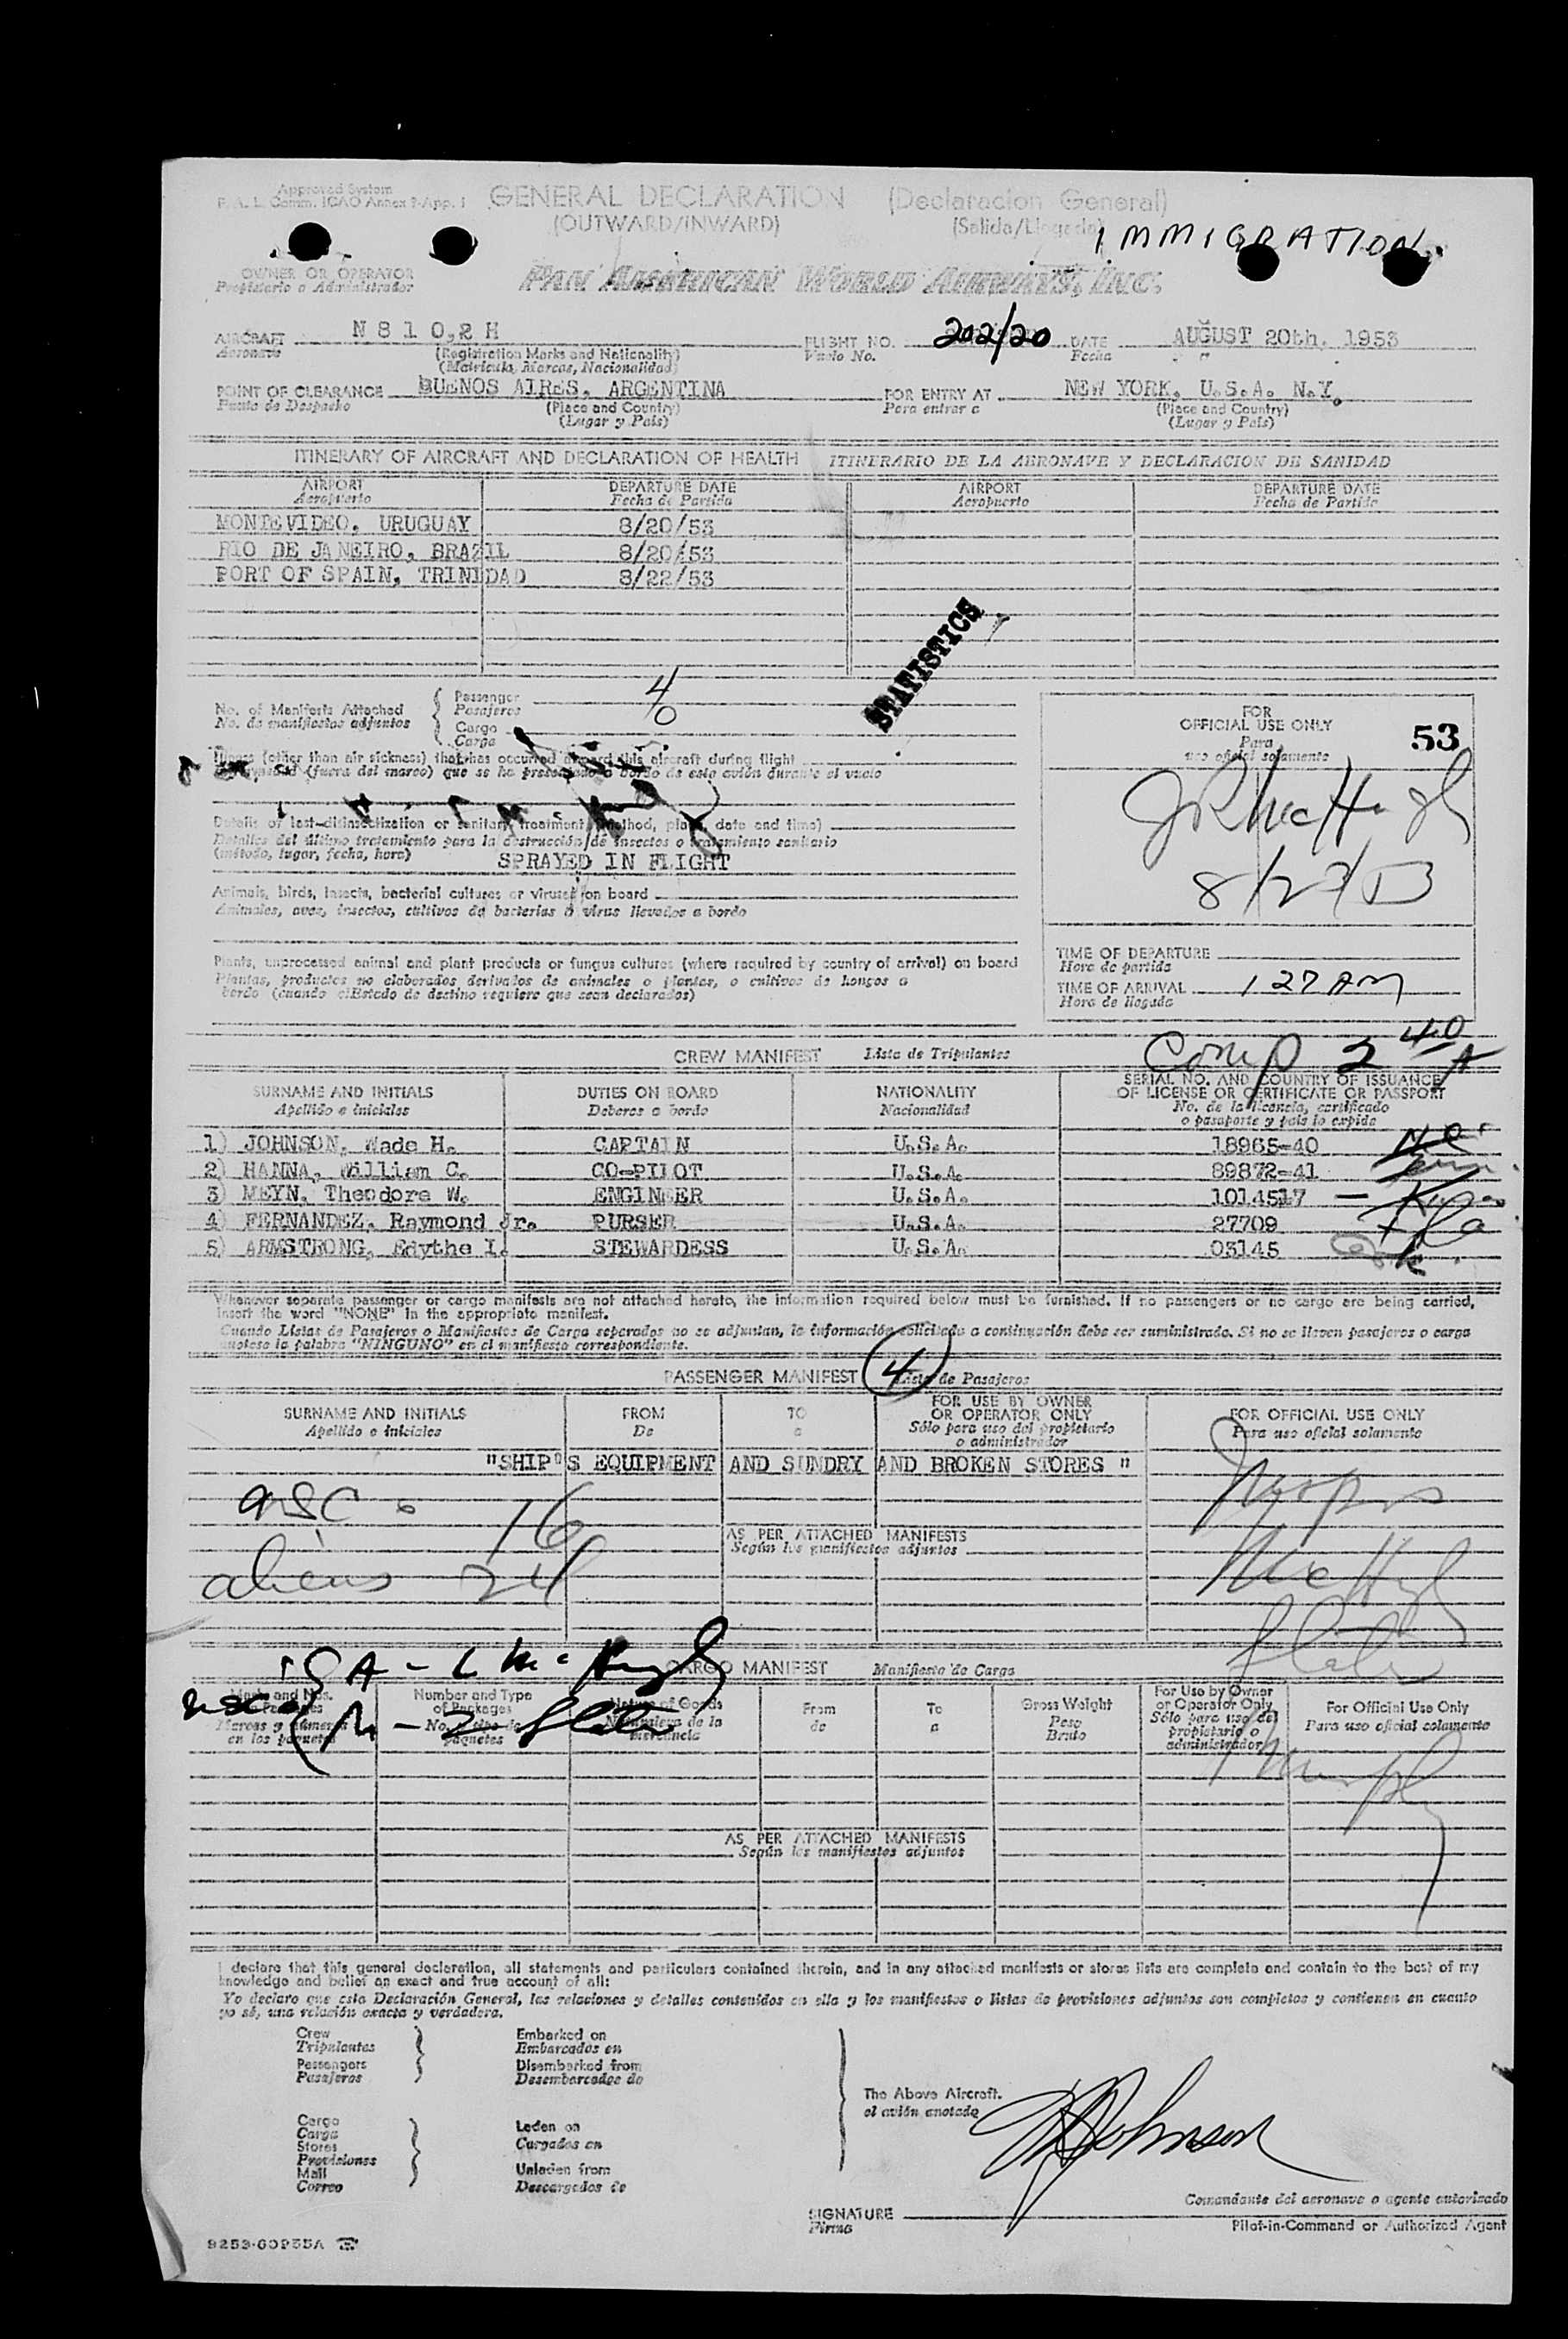 Approved System
F. A. L. Comm. ICAO Annex 9-App. 1
GENERAL DECLARATION (Declaracion General)
(OUTWARD/INWARD) (Salida/Llegada)
IMMIGRATION
OWNER OR OPERATOR
Propietario o Administrador
PAN AMERICAN WORLD AIRWAYS, INC.
AIRCRAFT N 8 1 0 2 H FLIGHT NO. 202/20 DATE AUGUST 20th. 1953
Aeronave (Registration Marks and Nationality) Vuelo No. Fecha
(Matricula, Marcas, Nacionalidad)
POINT OF CLEARANCE BUENOS AIRES, ARGENTINA FOR ENTRY AT NEW YORK, U.S.A. N.Y.
Punto de Despacho (Place and Country) Para entrar a (Place and Country)
(Lugar y País) (Lugar y País)
ITINERARY OF AIRCRAFT AND DECLARATION OF HEALTH ITINERARIO DE LA AERONAVE Y DECLARACION DE SANIDAD
AIRPORT DEPARTURE DATE AIRPORT DEPARTURE DATE
Aeropuerto Fecha de Partida Aeropuerto Fecha de Partida
MONTEVIDEO, URUGUAY 8/20/53
RIO DE JANEIRO, BRAZIL 8/20/53
PORT OF SPAIN, TRINIDAD 8/22/53
STATISTICS
No. of Manifests Attached
No. de manifiestos adjuntos
Passenger 4
Pasajeros
Cargo 0
Carga
Illness (other than air sickness) that has occurred aboard this aircraft during flight
(fuera del mareo) que se ha presentado a bordo de este avión durante el vuelo
Details of last disinsectization or sanitary treatment (method, place, date and time)
Detalles del último tratamiento para la destrucción de insectos o tratamiento sanitario
(método, lugar, fecha, hora) SPRAYED IN FLIGHT
Animals, birds, insects, bacterial cultures or viruses on board
Animales, aves, insectos, cultivos de bacterias o virus llevados a bordo
Plants, unprocessed animal and plant products or fungus cultures (where required by country of arrival) on board
Plantas, productos no elaborados derivados de animales o plantas, o cultivos de hongos a
bordo (cuando el Estado de destino requiere que sean declarados)
FOR
OFFICIAL USE ONLY 53
Para
uso oficial solamente
TIME OF DEPARTURE
Hora de partida
TIME OF ARRIVAL 1 27 AM
Hora de llegada
Comp 2 40 A
CREW MANIFEST Lista de Tripulantes
SURNAME AND INITIALS DUTIES ON BOARD NATIONALITY SERIAL NO. AND COUNTRY OF ISSUANCE
Apellido e iniciales Deberes a bordo Nacionalidad OF LICENSE OR CERTIFICATE OR PASSPORT
No. de la licencia, certificado
o pasaporte y país lo expide
1) JOHNSON, Wade H. CAPTAIN U.S.A. 18965-40
2) HANNA, William C. CO-PILOT U.S.A. 89872-41
3) MEYN, Theodore W. ENGINEER U.S.A. 1014517
4) FERNANDEZ, Raymond Jr. PURSER U.S.A. 27709
5) ARMSTRONG, Edythe I. STEWARDESS U.S.A. 03145
Whenever separate passenger or cargo manifests are not attached hereto, the information required below must be furnished. If no passengers or no cargo are being carried,
insert the word "NONE" in the appropriate manifest.
Cuando Listas de Pasajeros o Manifiestos de Carga separados no se adjuntan, la información solicitada a continuación debe ser suministrada. Si no se llevan pasajeros o carga
anótese la palabra "NINGUNO" en el manifiesto correspondiente.
PASSENGER MANIFEST 4 Lista de Pasajeros
SURNAME AND INITIALS FROM TO FOR USE BY OWNER FOR OFFICIAL USE ONLY
Apellido e iniciales De a OR OPERATOR ONLY Para uso oficial solamente
Sólo para uso del propietario
o administrador
"SHIP"S EQUIPMENT AND SUNDRY AND BROKEN STORES "
16
AS PER ATTACHED MANIFESTS
Según los manifiestos adjuntos
aliens 24
CARGO MANIFEST Manifiesto de Carga
Marks and Nos. Number and Type Nature of Goods From To Gross Weight For Use by Owner For Official Use Only
of Packages de a Peso or Operator Only Para uso oficial solamente
Marcas y números Naturaleza de la Bruto Sólo para uso del
en los paquetes paquetes propietario o
administrador
Murphy
AS PER ATTACHED MANIFESTS
Según los manifiestos adjuntos
I declare that this general declaration, all statements and particulars contained therein, and in any attached manifests or stores lists are complete and contain to the best of my
knowledge and belief an exact and true account of all:
Yo declaro que esta Declaración General, las relaciones y detalles contenidos en ella y los manifiestos o listas de provisiones adjuntos son completos y contienen en cuanto
yo sé, una relación exacta y verdadera.
Crew Embarked on
Tripulantes Embarcados en
Passengers Disembarked from
Pasajeros Desembarcados de
The Above Aircraft.
el avión anotado
Cargo Laden on
Carga Cargados en
Stores
Provisiones
Mail Unladen from
Correo Descargados de
Johnson
Comandante del aeronave o agente autorizado
SIGNATURE
Firma
Pilot-in-Command or Authorized Agent